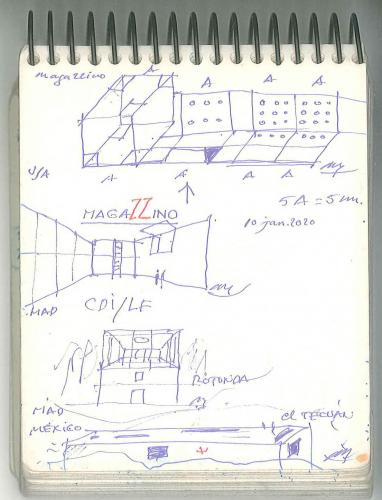 magazzino
A
A A A
USA
A A A A
5A = 5 m.
MAGAZZINO
10 jan. 2020
MAD
CDI/LF
ROTONDA
MAD
MÉXICO
el TECUÁN